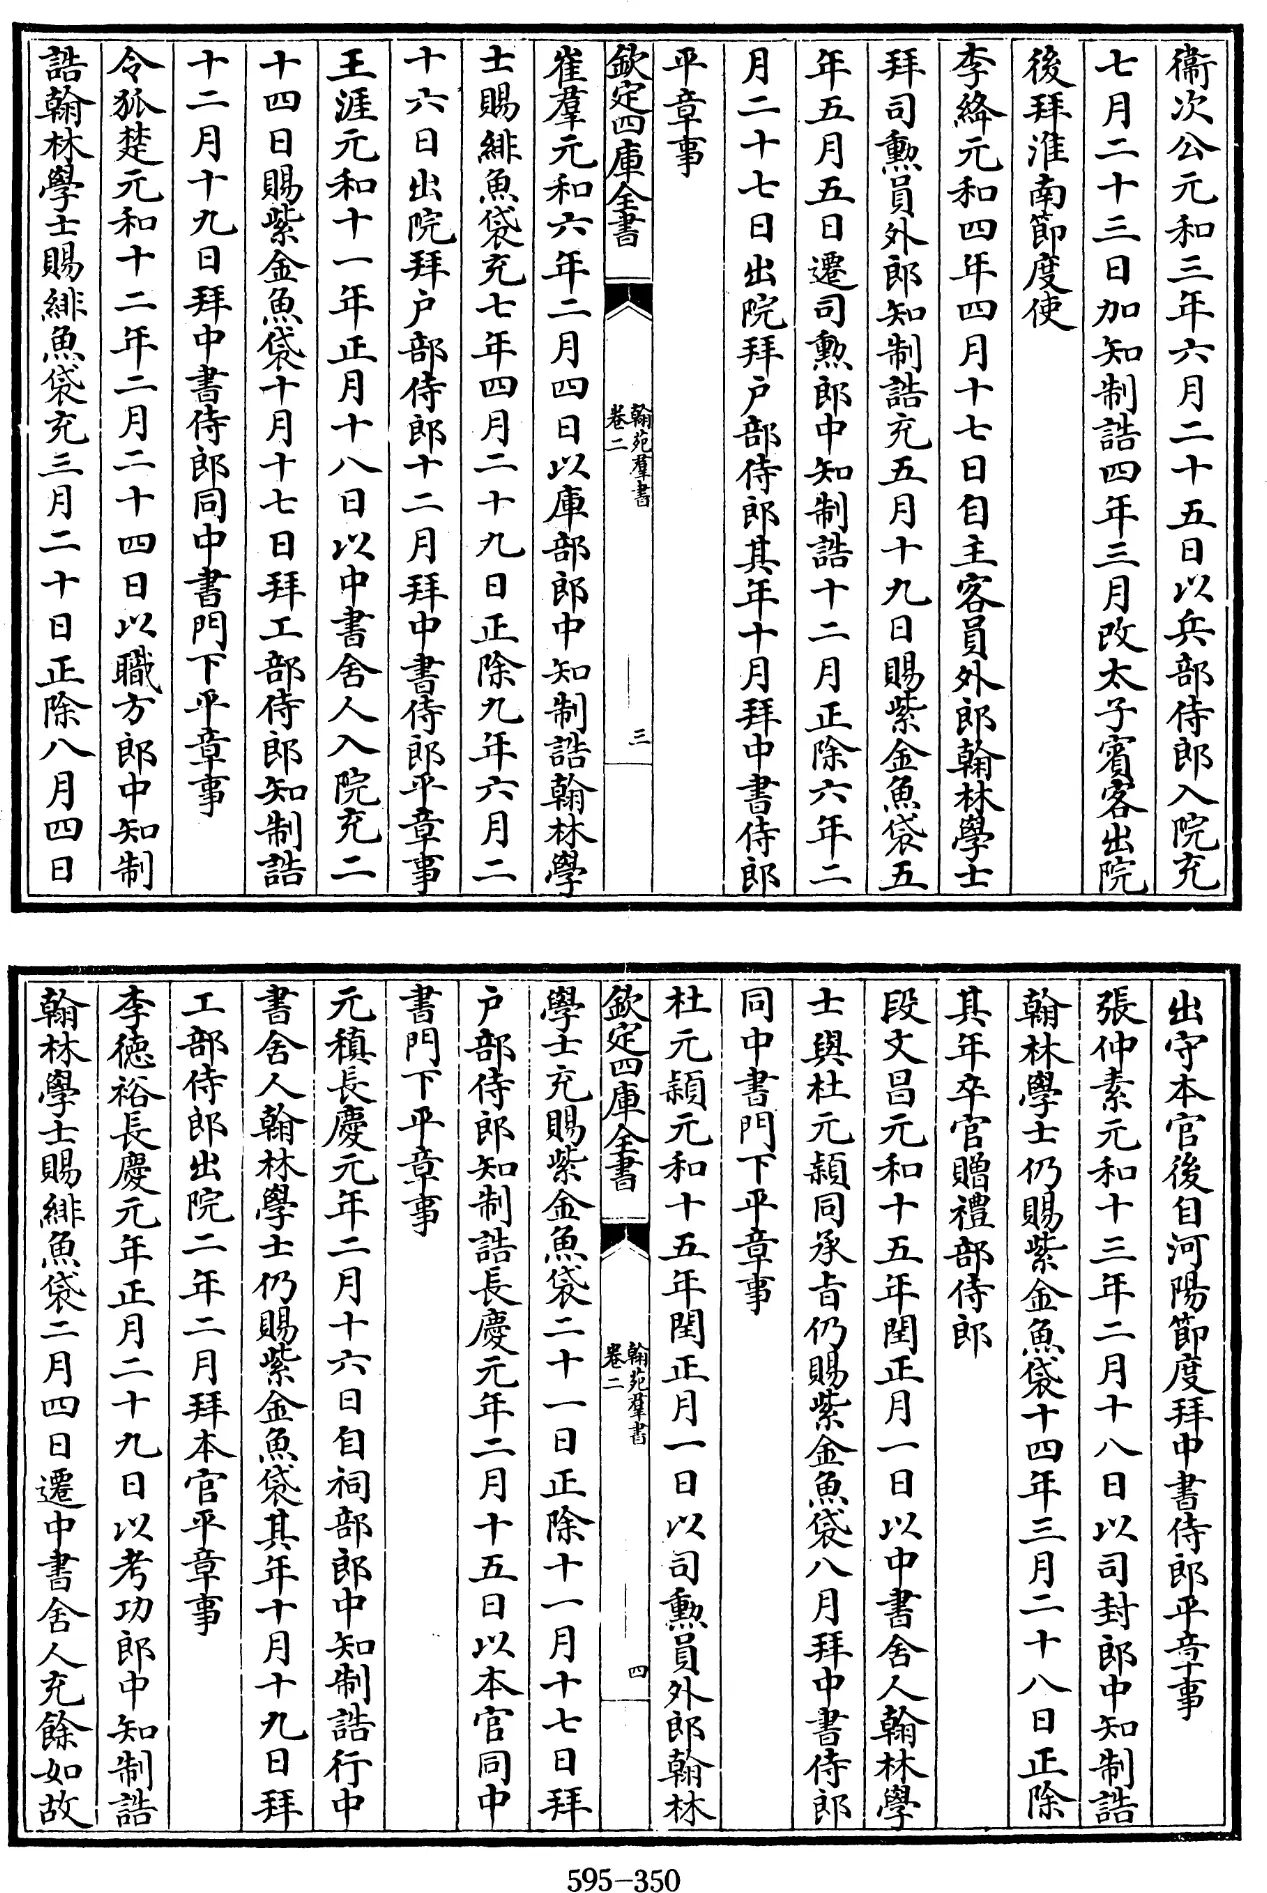 衞次公元和三年六月二十五日以兵部侍郎入院充
七月二十三日加知制誥四年三月改太子賓客出院
後拜淮南節度使
李絳元和四年四月十七日自主客員外郎翰林學士
拜司勲員外郎知制誥充五月十九日賜紫金魚袋五
年五月五日遷司勲郎中知制誥十二月正除六年二
月二十七日出院拜户部侍郎其年十月拜中書侍郎
平章事
欽定四庫全書
翰苑羣書
卷二
三
崔羣元和六年二月四日以庫部郎中知制誥翰林學
士賜緋魚袋充七年四月二十九日正除九年六月二
十六日出院拜户部侍郎十二月拜中書侍郎平章事
王涯元和十一年正月十八日以中書舍人入院充二
十四日賜紫金魚袋十月十七日拜工部侍郎知制誥
十二月十九日拜中書侍郎同中書門下平章事
令狐楚元和十二年二月二十四日以職方郎中知制
誥翰林學士賜緋魚袋充三月二十日正除八月四日
出守本官後自河陽節度拜中書侍郎平章事
張仲素元和十三年二月十八日以司封郎中知制誥
翰林學士仍賜紫金魚袋十四年三月二十八日正除
其年卒官贈禮部侍郎
段文昌元和十五年閏正月一日以中書舍人翰林學
士與杜元穎同承旨仍賜紫金魚袋八月拜中書侍郎
同中書門下平章事
杜元穎元和十五年閏正月一日以司勲員外郎翰林
欽定四庫全書
翰苑羣書
卷二
四
學士充賜紫金魚袋二十一日正除十一月十七日拜
户部侍郎知制誥長慶元年二月十五日以本官同中
書門下平章事
元稹長慶元年二月十六日自祠部郎中知制誥行中
書舍人翰林學士仍賜紫金魚袋其年十月十九日拜
工部侍郎出院二年二月拜本官平章事
李德裕長慶元年正月二十九日以考功郎中知制誥
翰林學士賜緋魚袋二月四日遷中書舍人充餘如故
595-350